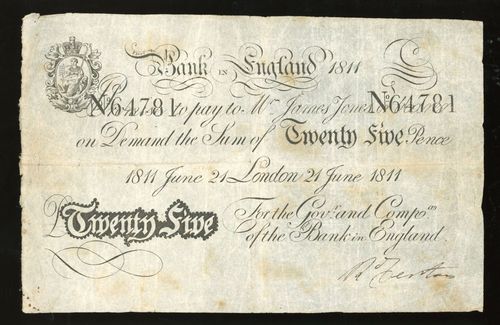 Bank in England 1811
I Prom. to pay to Mr. James Jones
No 64781 No 64781
on Demand the Sum of Twenty Five Pence
1811 June 21 London 21 June 1811
£Twenty Five
For the Govr. and Compa.
of the Bank in England.